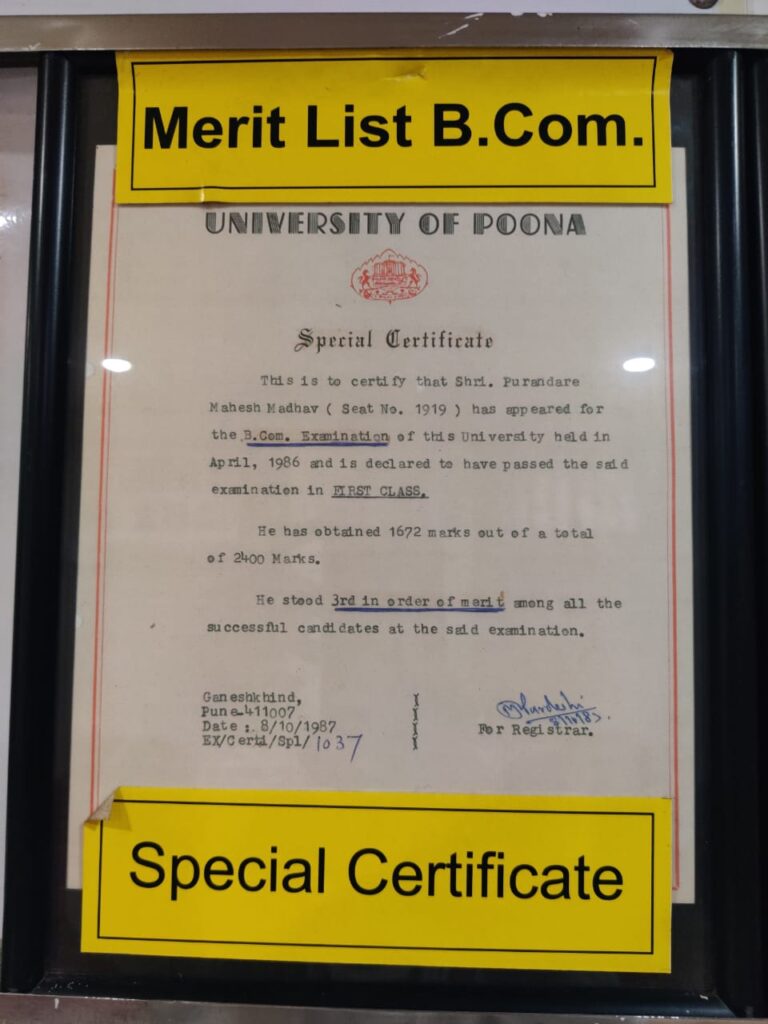 Merit List B.Com.
UNIVERSITY OF POONA
Special Certificate
This is to certify that Shri. Purandare
Mahesh Madhav ( Seat No. 1919 ) has appeared for
the B.Com. Examination of this University held in
April, 1986 and is declared to have passed the said
examination in FIRST CLASS.
He has obtained 1672 marks out of a total
of 2400 Marks.
He stood 3rd in order of merit among all the
successful candidates at the said examination.
Ganeshkhind,
Pune-411007
Date : 8/10/1987
EX/Certi/Spl/1037
For Registrar.
Special Certificate